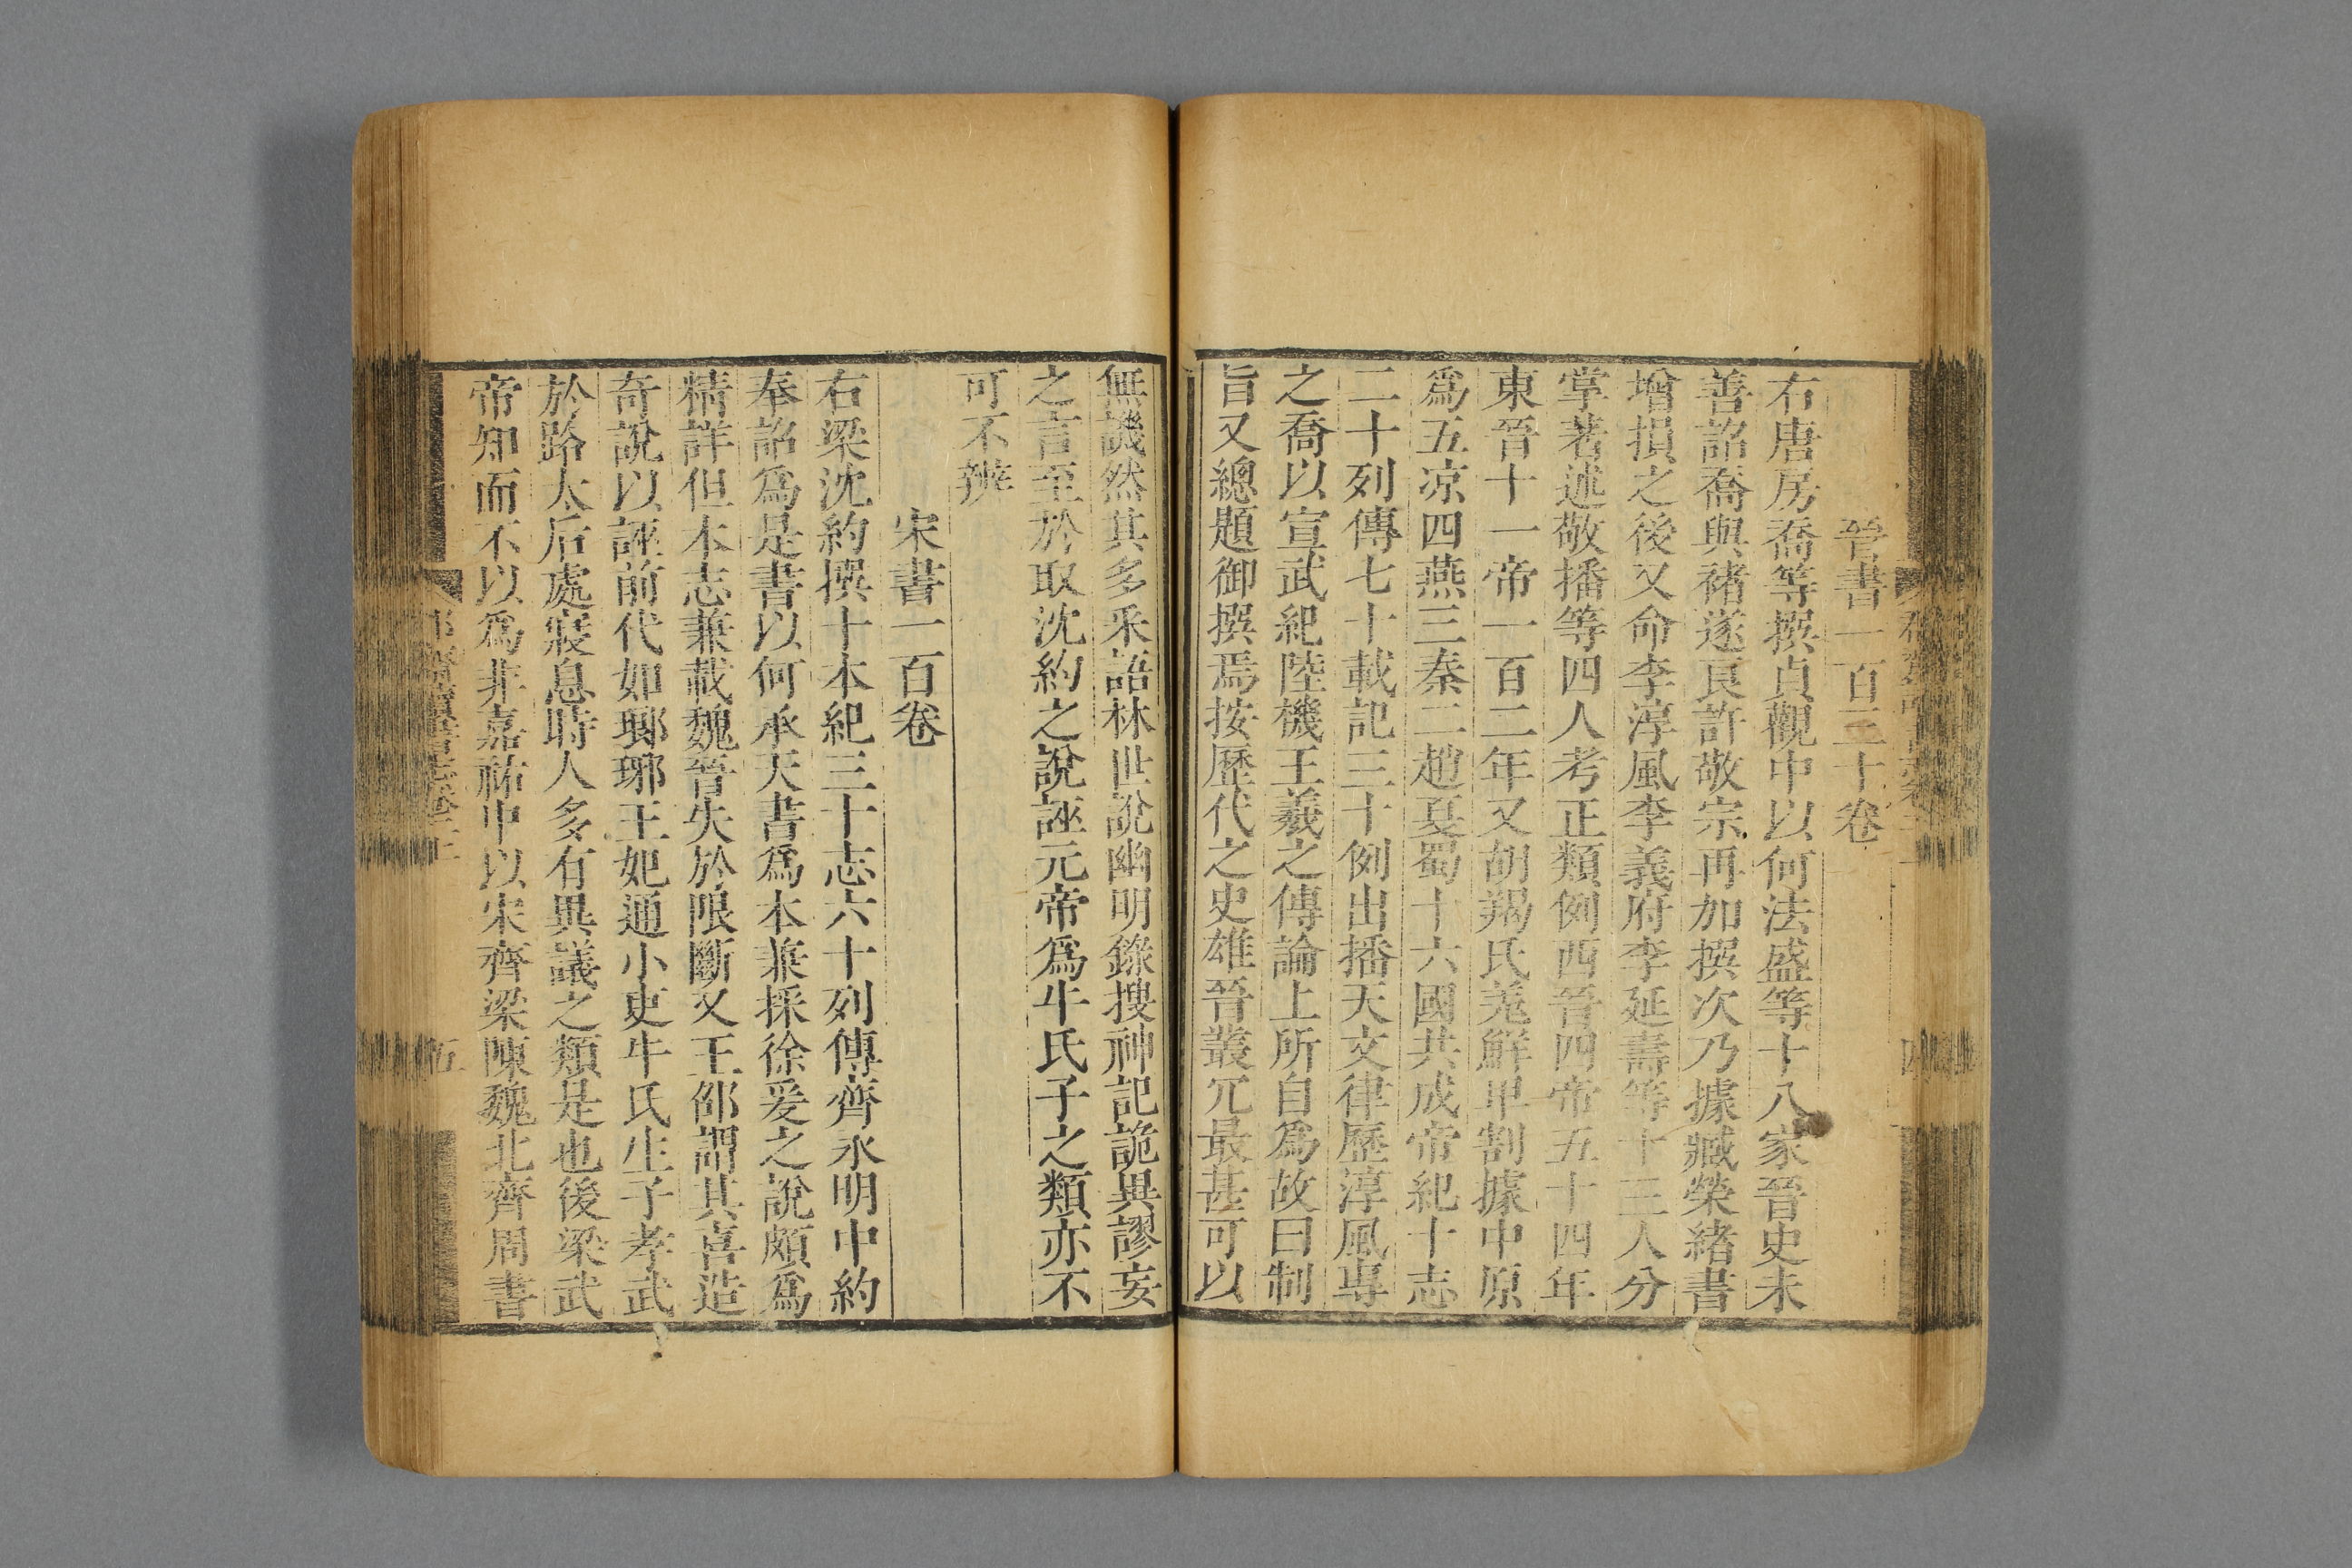 晉書一百三十卷
右唐房喬等撰貞觀中以何法盛等十八家晉史未
善詔喬與褚遂良許敬宗再加撰次乃據臧榮緒書
增損之後又命李淳風李義府李延壽等十三人分
掌著述敬播等四人考正類例西晉四帝五十四年
東晉十一帝一百二年又胡羯氐羌鮮卑割據中原
爲五凉四燕三秦二趙夏蜀十六國共成帝紀十志
二十列傳七十載記三十例出播天文律歷淳風專
之喬以宣武紀陸機王羲之傳論上所自爲故曰制
旨又總題御撰焉按歷代之史雄晉叢冗最甚可以
無譏然其多采語林世說幽明錄搜神記詭異謬妄
之言至於取沈約之說誣元帝爲牛氏子之類亦不
可不辨
宋書一百卷
右梁沈約撰十本紀三十志六十列傳齊永明中約
奉詔爲是書以何承天書爲本兼採徐爰之說頗爲
精詳但本志兼載魏晉失於限斷又王邵謂其喜造
奇說以誣前代如瑯琊王妃通小吏牛氏生子孝武
於路太后處寢息時人多有異議之類是也後梁武
帝知而不以爲非嘉祐中以宋齊梁陳魏北齊周書
五